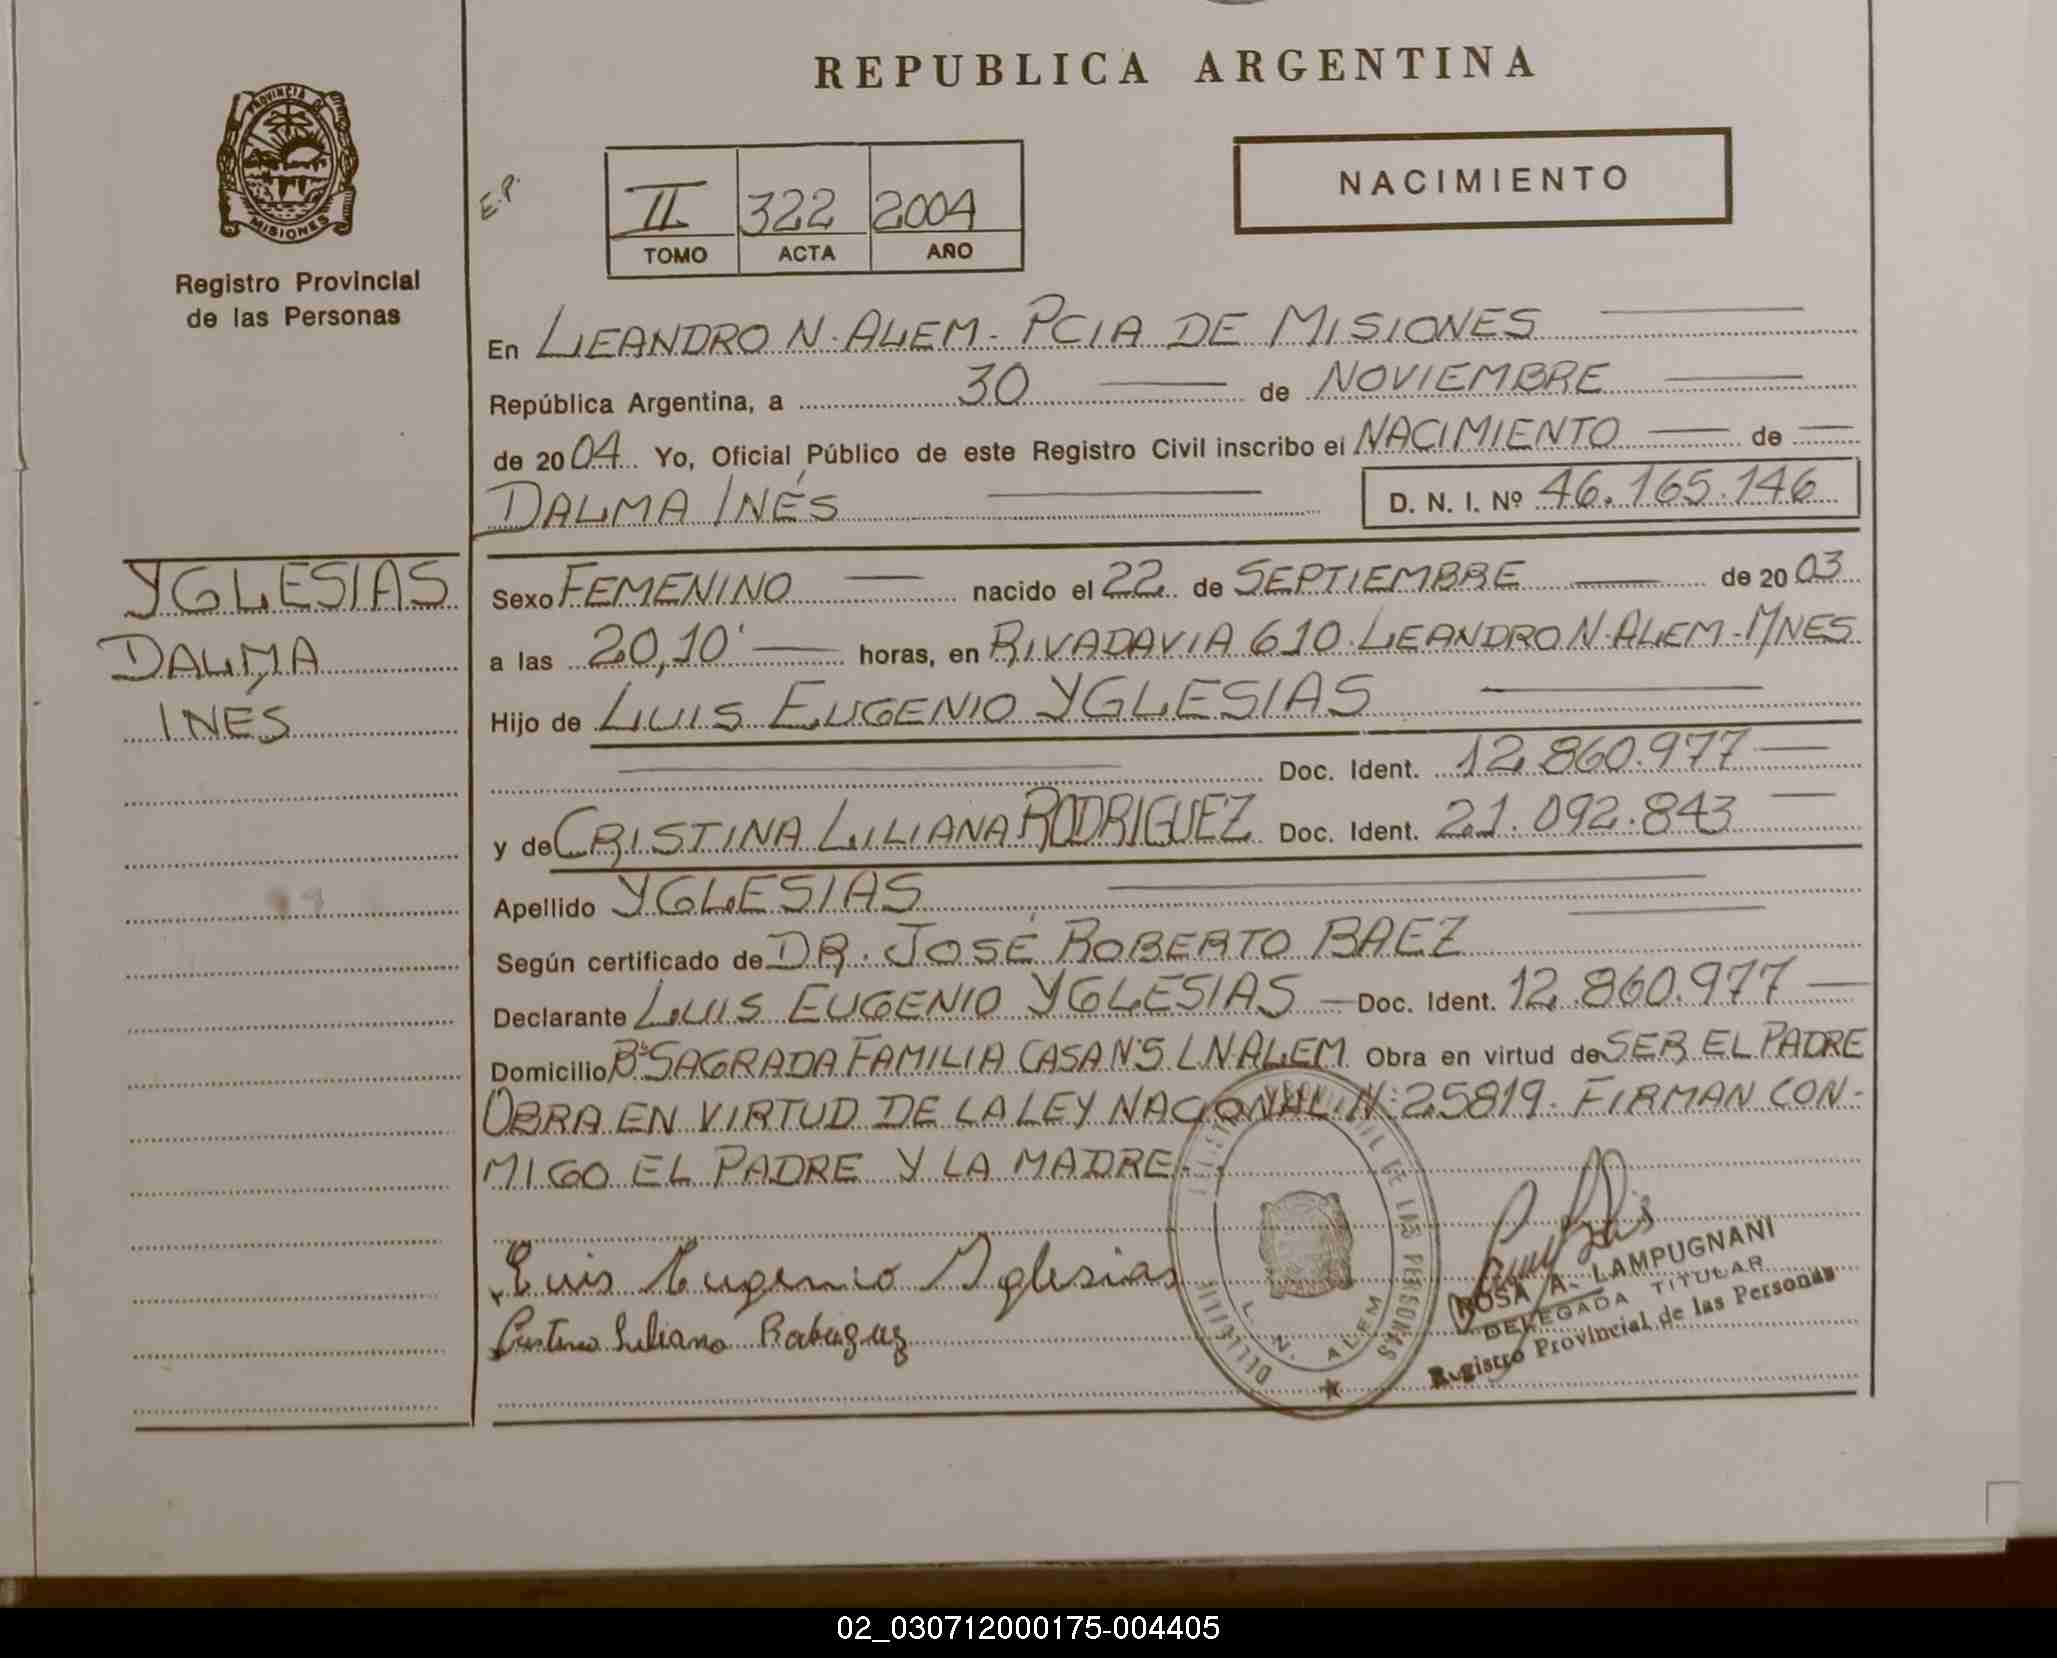 REPUBLICA ARGENTINA
PROVINCIA DE
MISIONES
Registro Provincial
de las Personas
E.P.
II 322 2004
TOMO ACTA AÑO
NACIMIENTO
En LEANDRO N. ALEM - PCIA DE MISIONES
República Argentina, a 30 de NOVIEMBRE
de 2004 Yo, Oficial Público de este Registro Civil inscribo el NACIMIENTO de
DALMA INÉS D. N. I. Nº 46.165.146
YGLESIAS
DALMA
INÉS
Sexo FEMENINO nacido el 22 de SEPTIEMBRE de 2003
a las 20,10' horas, en RIVADAVIA 610. LEANDRO N. ALEM - MNES
Hijo de LUIS EUGENIO YGLESIAS
Doc. Ident. 12.860.977
y de CRISTINA LILIANA RODRIGUEZ Doc. Ident. 21.092.843
Apellido YGLESIAS
Según certificado de DR. JOSÉ ROBERTO BAEZ
Declarante LUIS EUGENIO YGLESIAS Doc. Ident. 12.860.977
Domicilio Bº SAGRADA FAMILIA CASA Nº5 L.N.ALEM Obra en virtud de SER EL PADRE
OBRA EN VIRTUD DE LA LEY NACIONAL Nº 25819. FIRMAN CON-
MIGO EL PADRE Y LA MADRE.
Luis Eugenio Yglesias
DE LAS PERSONAS
L. N. ALEM
ROSA A. LAMPUGNANI
DELEGADA TITULAR
Registro Provincial de las Personas
02_030712000175-004405